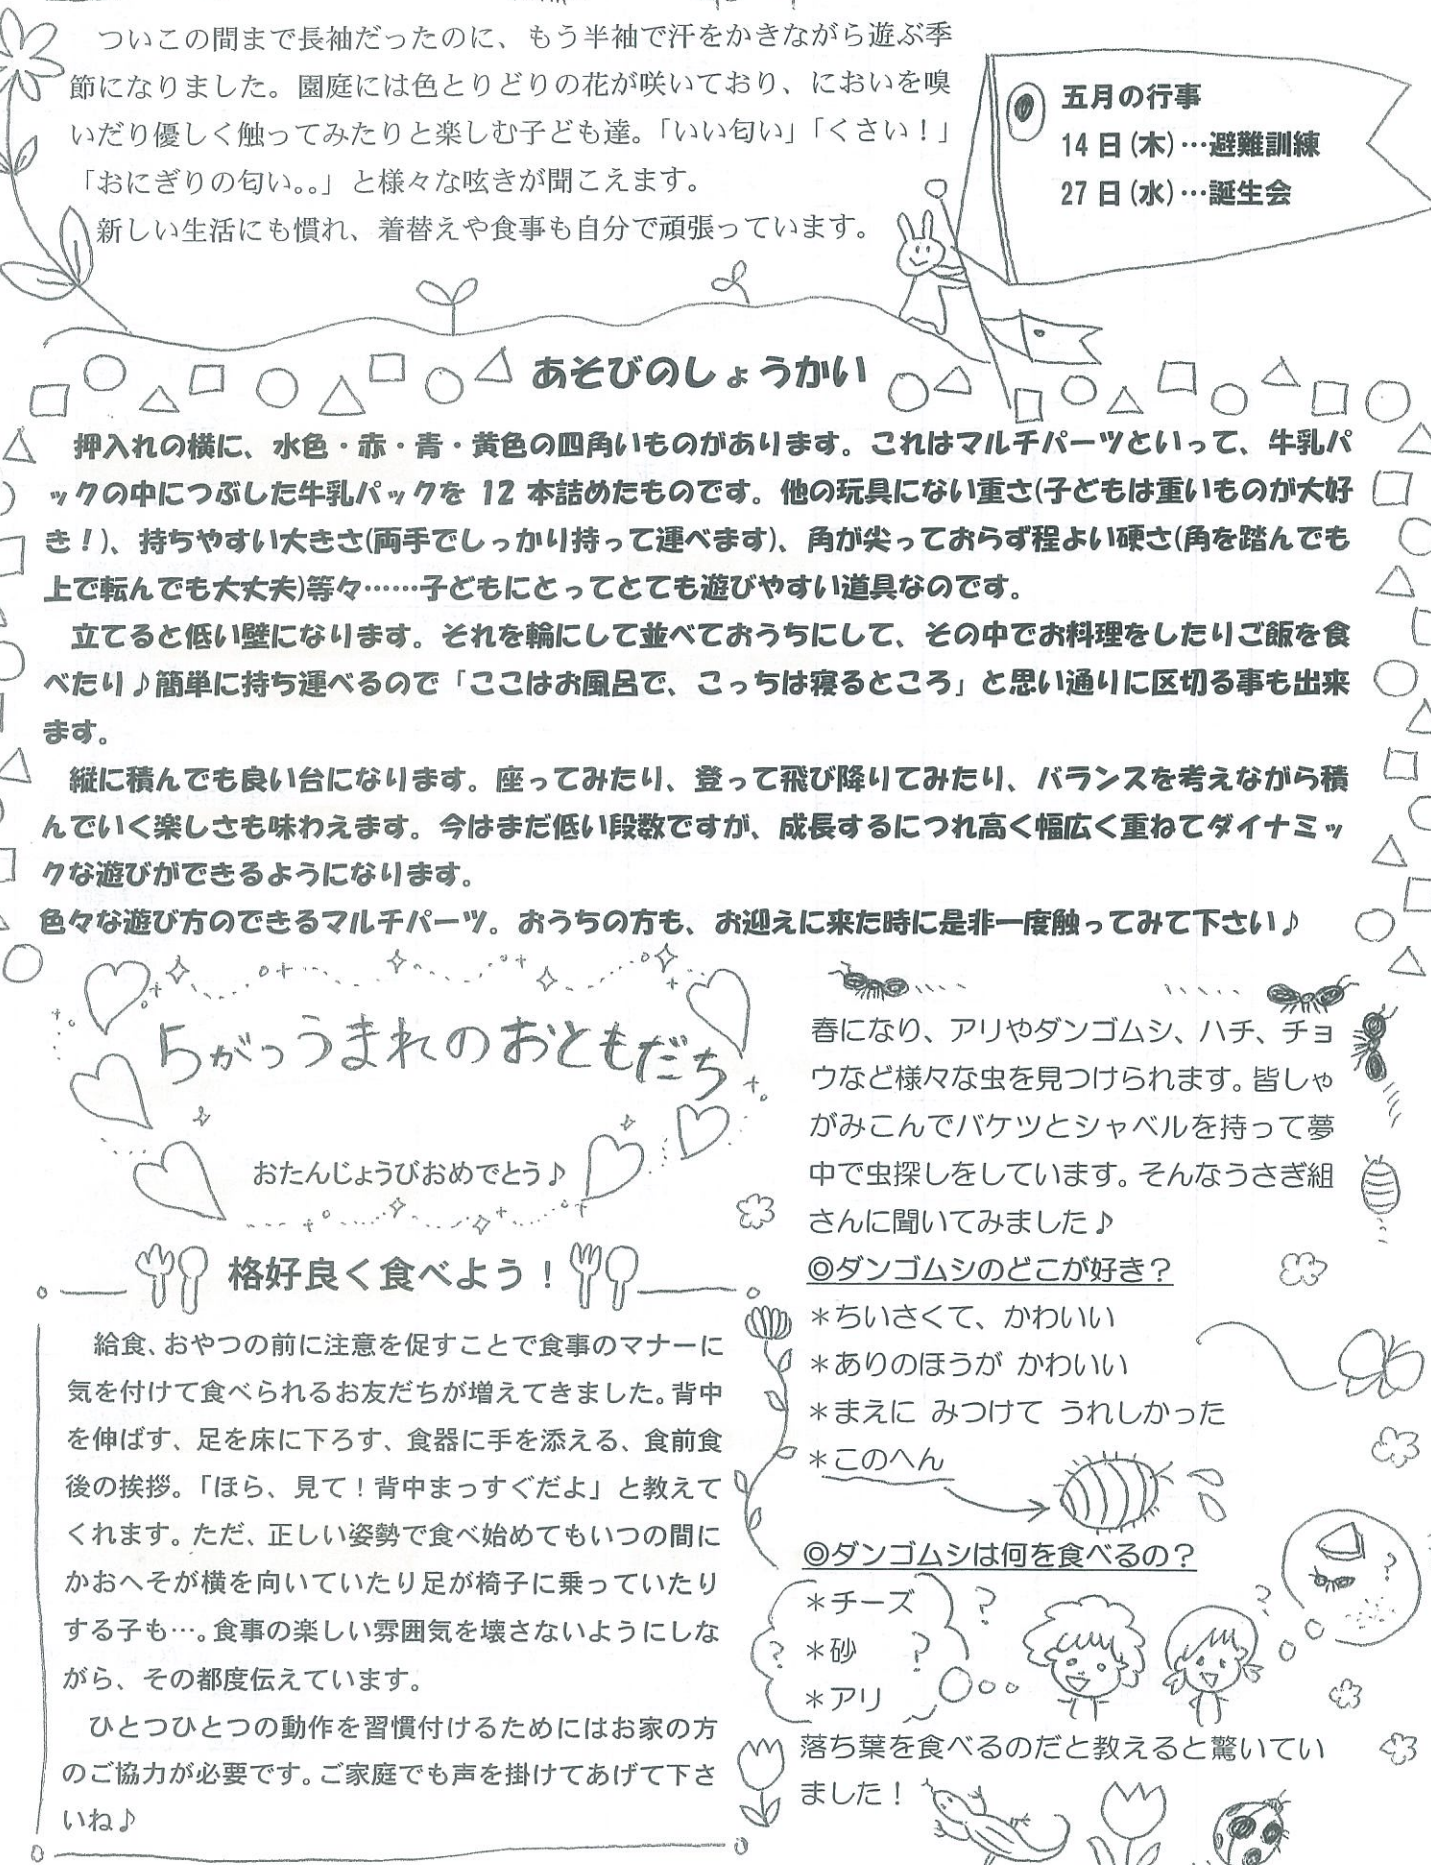 ついこの間まで長袖だったのに、もう半袖で汗をかきながら遊ぶ季
節になりました。園庭には色とりどりの花が咲いており、においを嗅
いだり優しく触ってみたりと楽しむ子ども達。「いい匂い」「くさい！」
「おにぎりの匂い。。」と様々な呟きが聞こえます。
新しい生活にも慣れ、着替えや食事も自分で頑張っています。
五月の行事
14日(木)…避難訓練
27日(水)…誕生会
あそびのしょうかい
押入れの横に、水色・赤・青・黄色の四角いものがあります。これはマルチパーツといって、牛乳パ
ックの中につぶした牛乳パックを 12 本詰めたものです。他の玩具にない重さ(子どもは重いものが大好
き！)、持ちやすい大きさ(両手でしっかり持って運べます)、角が尖っておらず程よい硬さ(角を踏んでも
上で転んでも大丈夫)等々……子どもにとってとても遊びやすい道具なのです。
立てると低い壁になります。それを輪にして並べておうちにして、その中でお料理をしたりご飯を食
べたり♪簡単に持ち運べるので「ここはお風呂で、こっちは寝るところ」と思い通りに区切る事も出来
ます。
縦に積んでも良い台になります。座ってみたり、登って飛び降りてみたり、バランスを考えながら積
んでいく楽しさも味わえます。今はまだ低い段数ですが、成長するにつれ高く幅広く重ねてダイナミッ
クな遊びができるようになります。
色々な遊び方のできるマルチパーツ。おうちの方も、お迎えに来た時に是非一度触ってみて下さい♪
5がつうまれのおともだち
おたんじょうびおめでとう♪
格好良く食べよう！
給食、おやつの前に注意を促すことで食事のマナーに
気を付けて食べられるお友だちが増えてきました。背中
を伸ばす、足を床に下ろす、食器に手を添える、食前食
後の挨拶。「ほら、見て！背中まっすぐだよ」と教えて
くれます。ただ、正しい姿勢で食べ始めてもいつの間に
かおへそが横を向いていたり足が椅子に乗っていたり
する子も…。食事の楽しい雰囲気を壊さないようにしな
がら、その都度伝えています。
ひとつひとつの動作を習慣付けるためにはお家の方
のご協力が必要です。ご家庭でも声を掛けてあげて下さ
いね♪
春になり、アリやダンゴムシ、ハチ、チョ
ウなど様々な虫を見つけられます。皆しゃ
がみこんでバケツとシャベルを持って夢
中で虫探しをしています。そんなうさぎ組
さんに聞いてみました♪
◎ダンゴムシのどこが好き？
＊ちいさくて、かわいい
＊ありのほうが かわいい
＊まえに みつけて うれしかった
＊このへん
◎ダンゴムシは何を食べるの？
＊チーズ
＊砂
＊アリ
落ち葉を食べるのだと教えると驚いてい
ました！